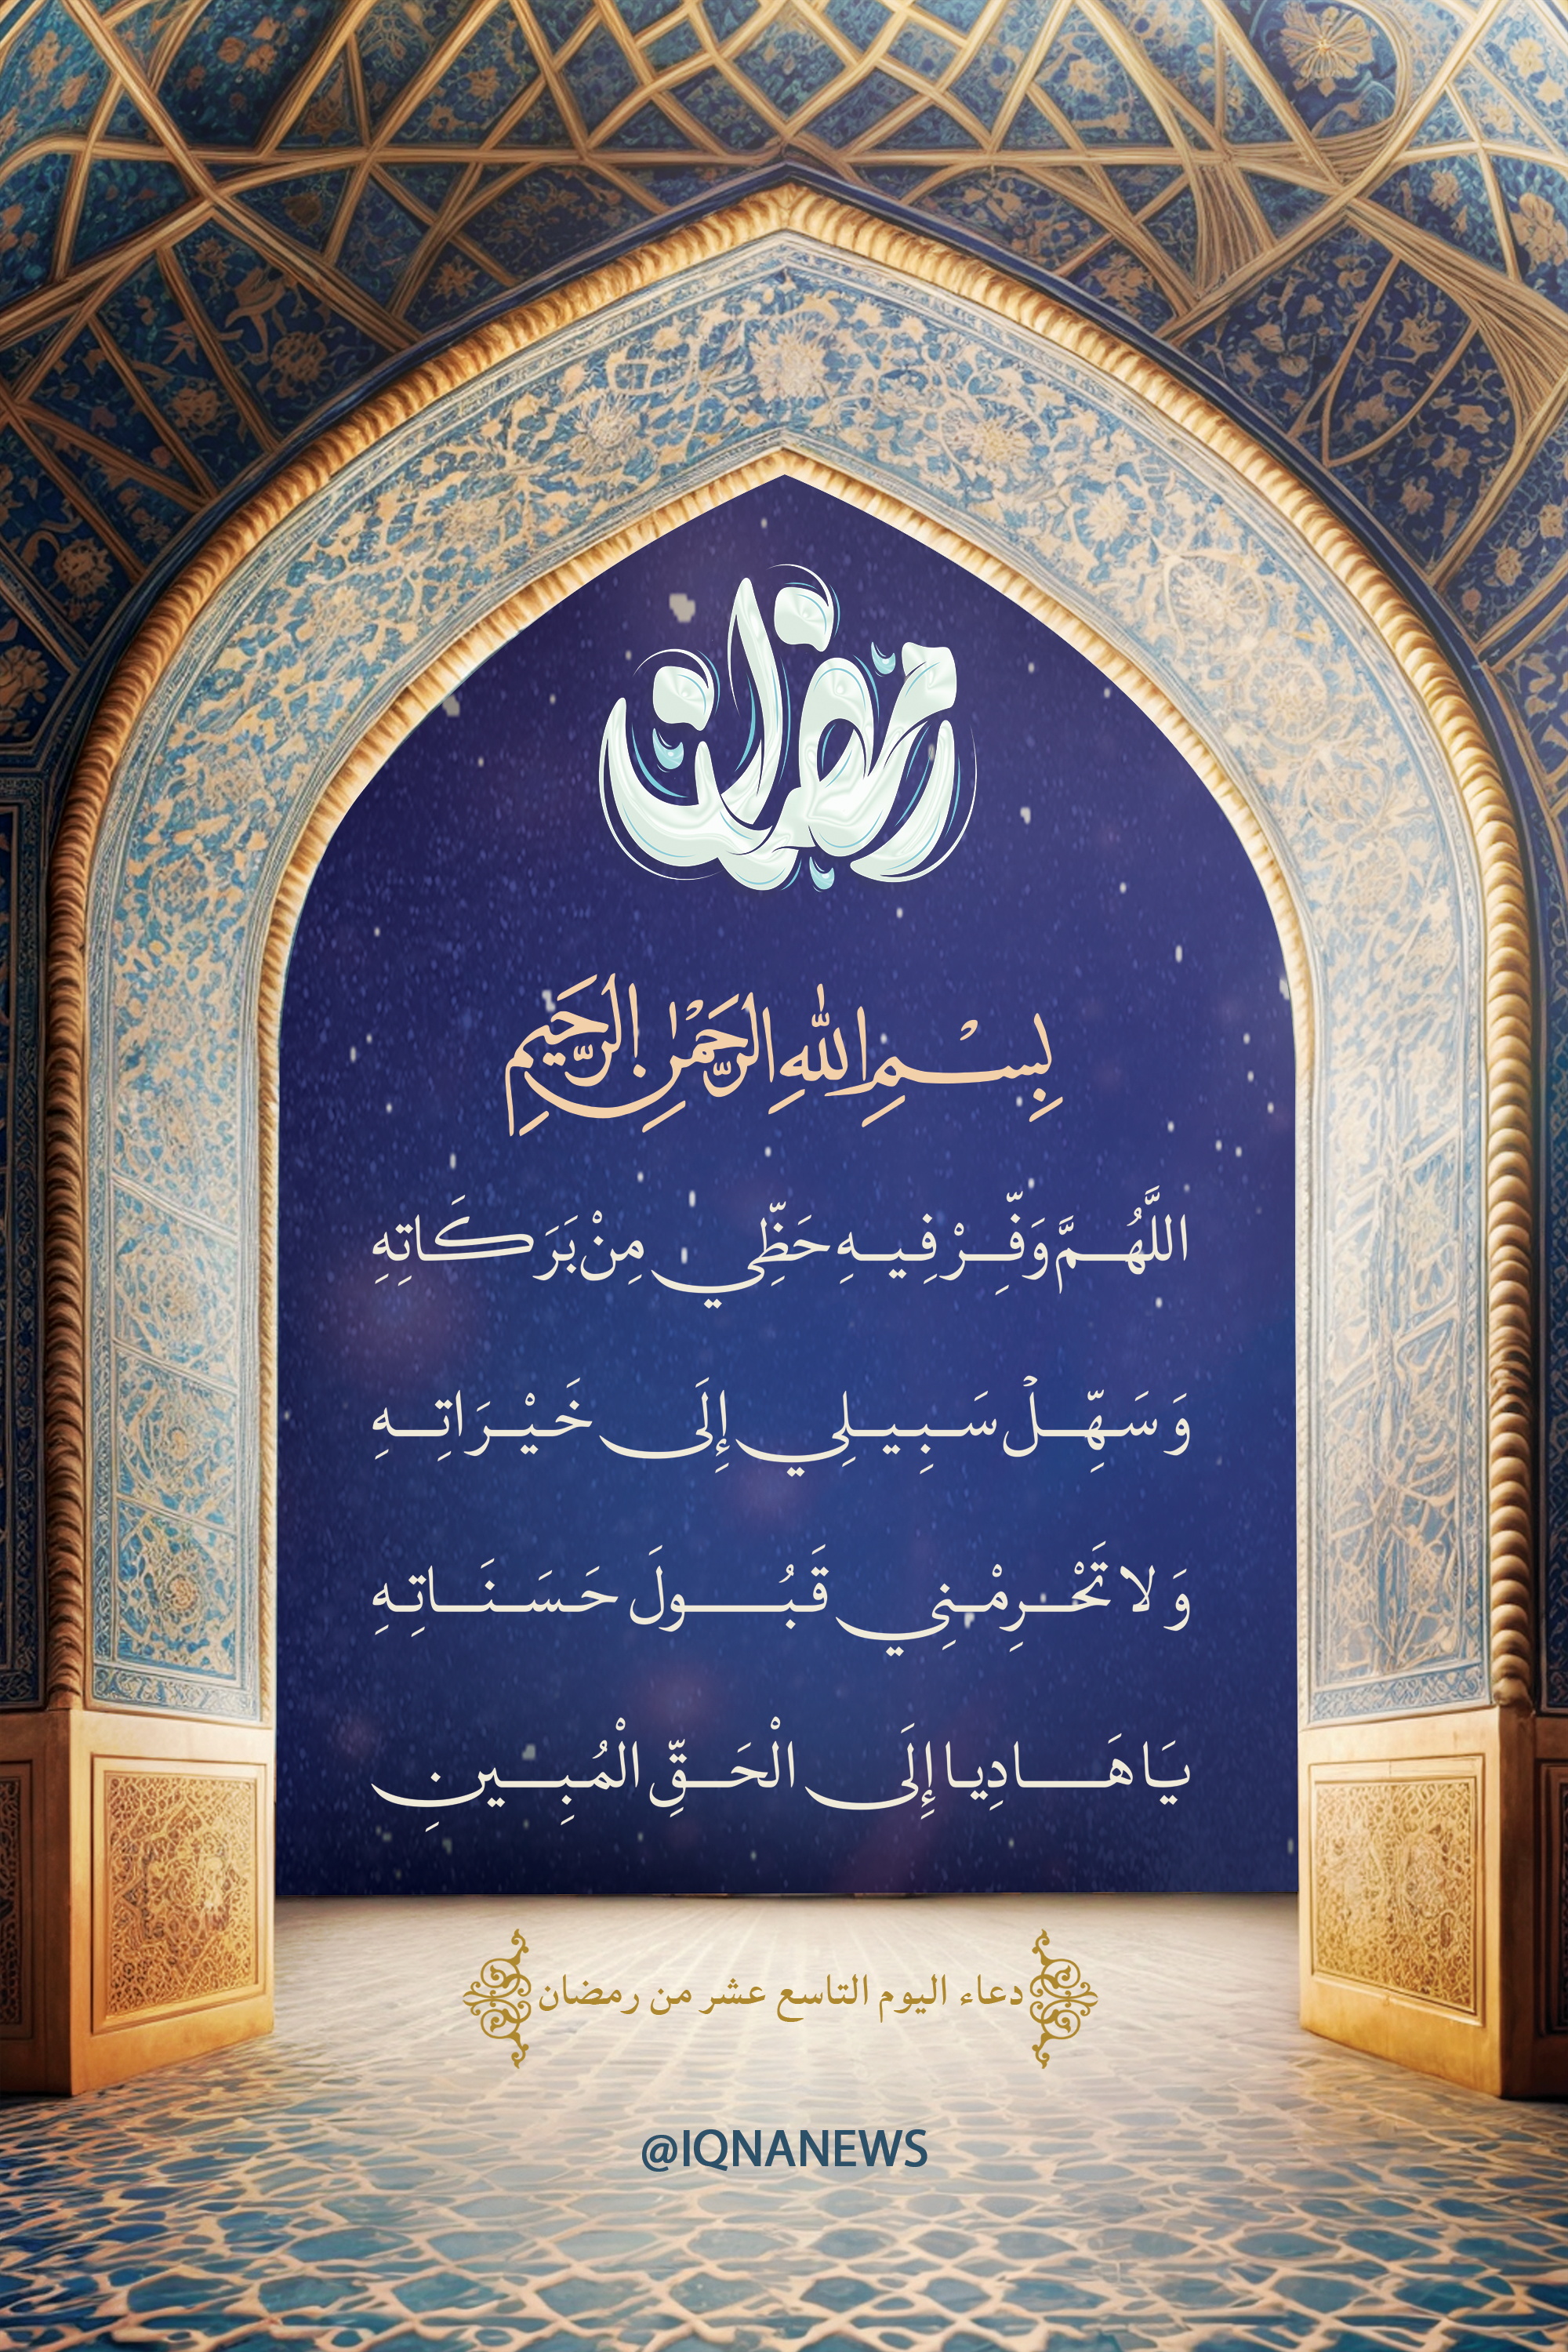 رمضان
بِسْمِ اللّٰهِ الرَّحْمٰنِ الرَّحِيمِ
اللَّهُمَّ وَفِّرْ فِيهِ حَظِّي مِنْ بَرَكَاتِهِ
وَ سَهِّلْ سَبِيلِي إِلَى خَيْرَاتِهِ
وَ لا تَحْرِمْنِي قَبُولَ حَسَنَاتِهِ
يَا هَادِيا إِلَى الْحَقِّ الْمُبِينِ
دعاء اليوم التاسع عشر من رمضان
@IQNANEWS